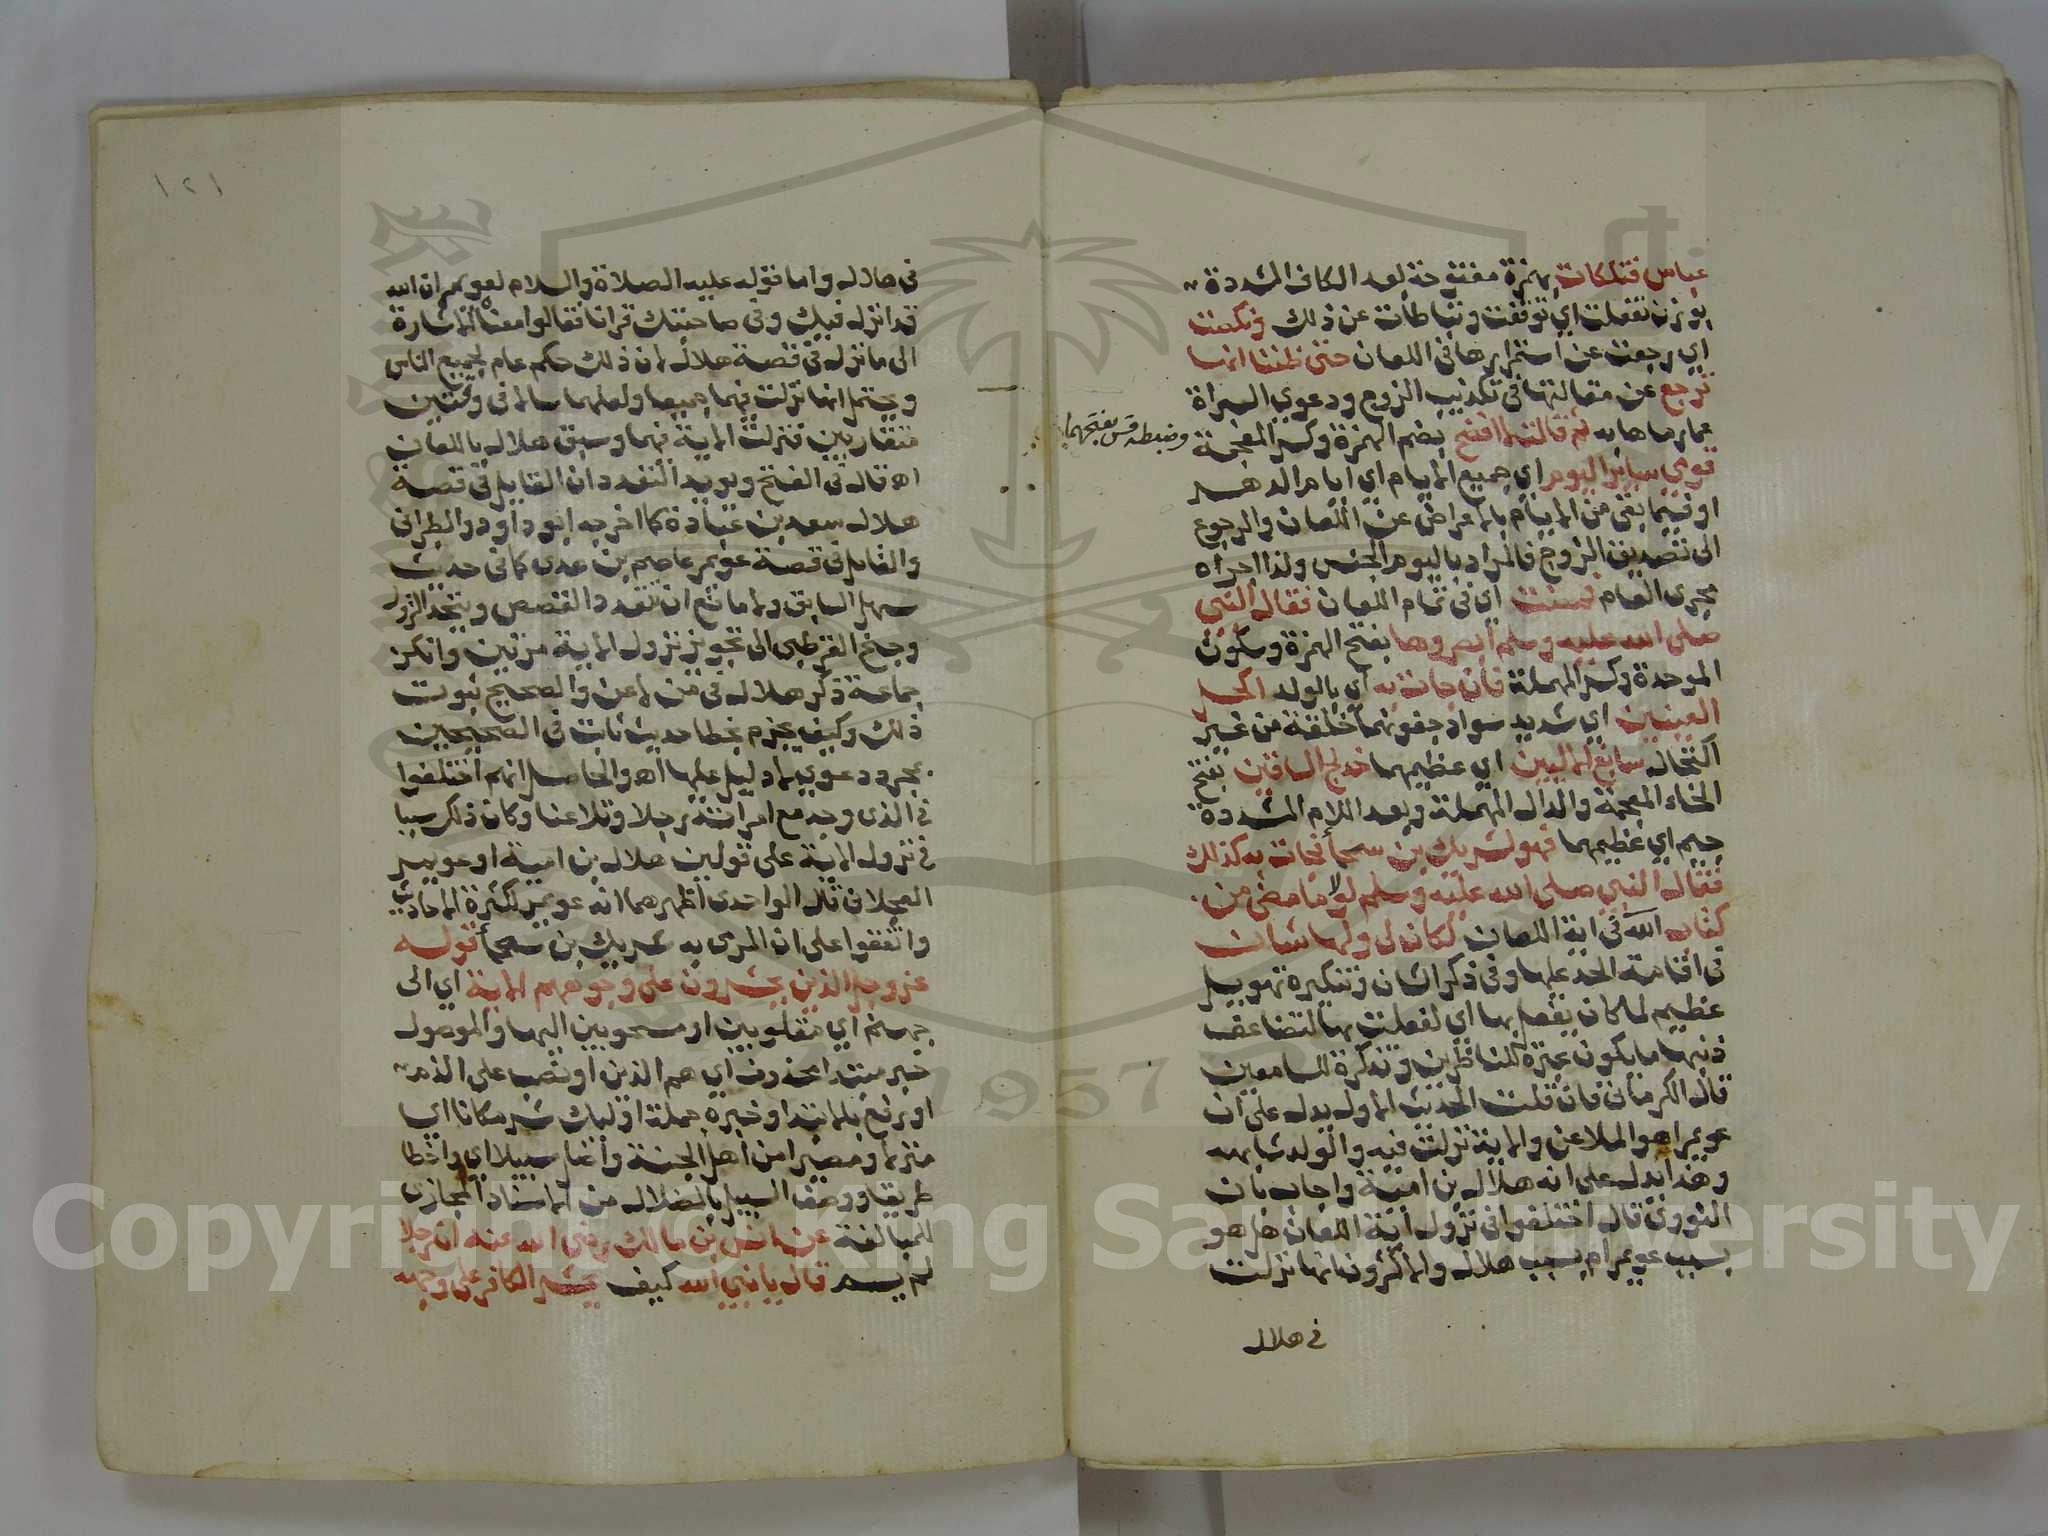 عباس فتلكات بهمزة مفتوحة بعد الكاف المشددة
بوزن تفعلت اي توقفت وتباطات عن ذلك ونكصت
اي رجعت عن استمرارها في اللعان حتى ظننا انها
ترجع عن مقالتها في تكذيب الزوج ودعوي البراة
عما رماها به ثم قالت لا افضح بضم الهمزة وكسر المعجمة
وضبطه قس بفتحهما
قومي ساير اليوم اي جميع الايام اي ايام الدهر
او فيما بقي من الايام بالاعراض عن اللعان والرجوع
الى تصديق الزوج فالمراد باليوم الجنس ولذا اجراه
مجرى العام فمضت اي في تمام اللعان فقال النبي
صلى الله عليه وسلم ابصروها بفتح الهمزة وسكون
الموحدة وكسر المهملة فان جات به اي بالولد اكحل
العينين اي شديد سواد جفونهما خلقة من غير
اكتحال سابغ الاليتين اي عظيمهما خدلج الساقين بفتح
الخاء المعجمة والدال المهملة وبعد اللام المشددة
جيم اي عظيمهما فهو لشريك بن سحما فجات به كذلك
فقال النبي صلى الله عليه وسلم لولا ما مضى من
كتاب الله في اية اللعان لكان لي ولها شان
في اقامة الحد عليها وفي ذكر الشان وتنكيره تهويل
عظيم لما كان يفعل بها اي لفعلت بها لتضاعف
ذنبها ما يكون عبرة للناظرين وتذكرة للسامعين
قال الكرماني فان قلت الحديث الاول يدل على ان
عويمرا هو الملاعن والاية نزلت فيه والولد شابهه
وهذا يدل على انه هلال بن امية واجاب بان
النووي قال اختلفوا في نزول اية اللعان هل هو
بسبب عويمر ام بسبب هلال والاكثرون انها نزلت
في هلال
١٢١
في هلال واما قوله عليه الصلاة والسلام لعويمر ان الله
قد انزل فيك وفي صاحبتك قرانا فقالوا معناه الاشارة
الى ما نزل في قصة هلال لان ذلك حكم عام لجميع الناس
ويحتمل انها نزلت فيهما جميعا ولعلهما سالا في وقتين
متقاربين فنزلت الاية فيهما وسبق هلال باللعان
اه قال في الفتح ويويد التعدد ان القايل في قصة
هلال سعد بن عبادة كما اخرجه ابو داود والطبراني
والقايل في قصة عويمر عاصم بن عدي كما في حديث
سهل السابق ولا مانع ان تتعدد القصص ويتحد النزول
وجنح القرطبي الى تجويز نزول الاية مرتين وانكر
جماعة ذكر هلال في من لاعن والصحيح ثبوت
ذلك وكيف يجزم بخطا حديث ثابت في الصحيحين
بمجرد دعوي لا دليل عليها اه والحاصل انهم اختلفوا
في الذي وجد مع امراته رجلا وتلاعنا وكان ذلك سببا
في نزول الاية على قولين هلال بن امية او عويمر
العجلاني قال الواحدي اظهرهما انه عويمر لكثرة الاحاديث
واتفقوا على ان المرمى به شريك بن سحما قوله
عز وجل الذين يحشرون على وجوههم الاية اي الى
جهنم اي مقلوبين او مسحوبين اليها والموصول
خبر مبتدا محذوف اي هم الذين او نصب على الذم
او يرتفع بالابتدا وخبره جملة اوليك شر مكانا اي
منزلا ومصيرا من اهل الجنة واضل سبيلا اي واخطا
طريقا ووصف السبيل بالضلال من الاسناد المجازي
للمبالغة عن انس بن مالك رضي الله عنه ان رجلا
لم يسم قال يا نبي الله كيف يحشر الكافر على وجهه